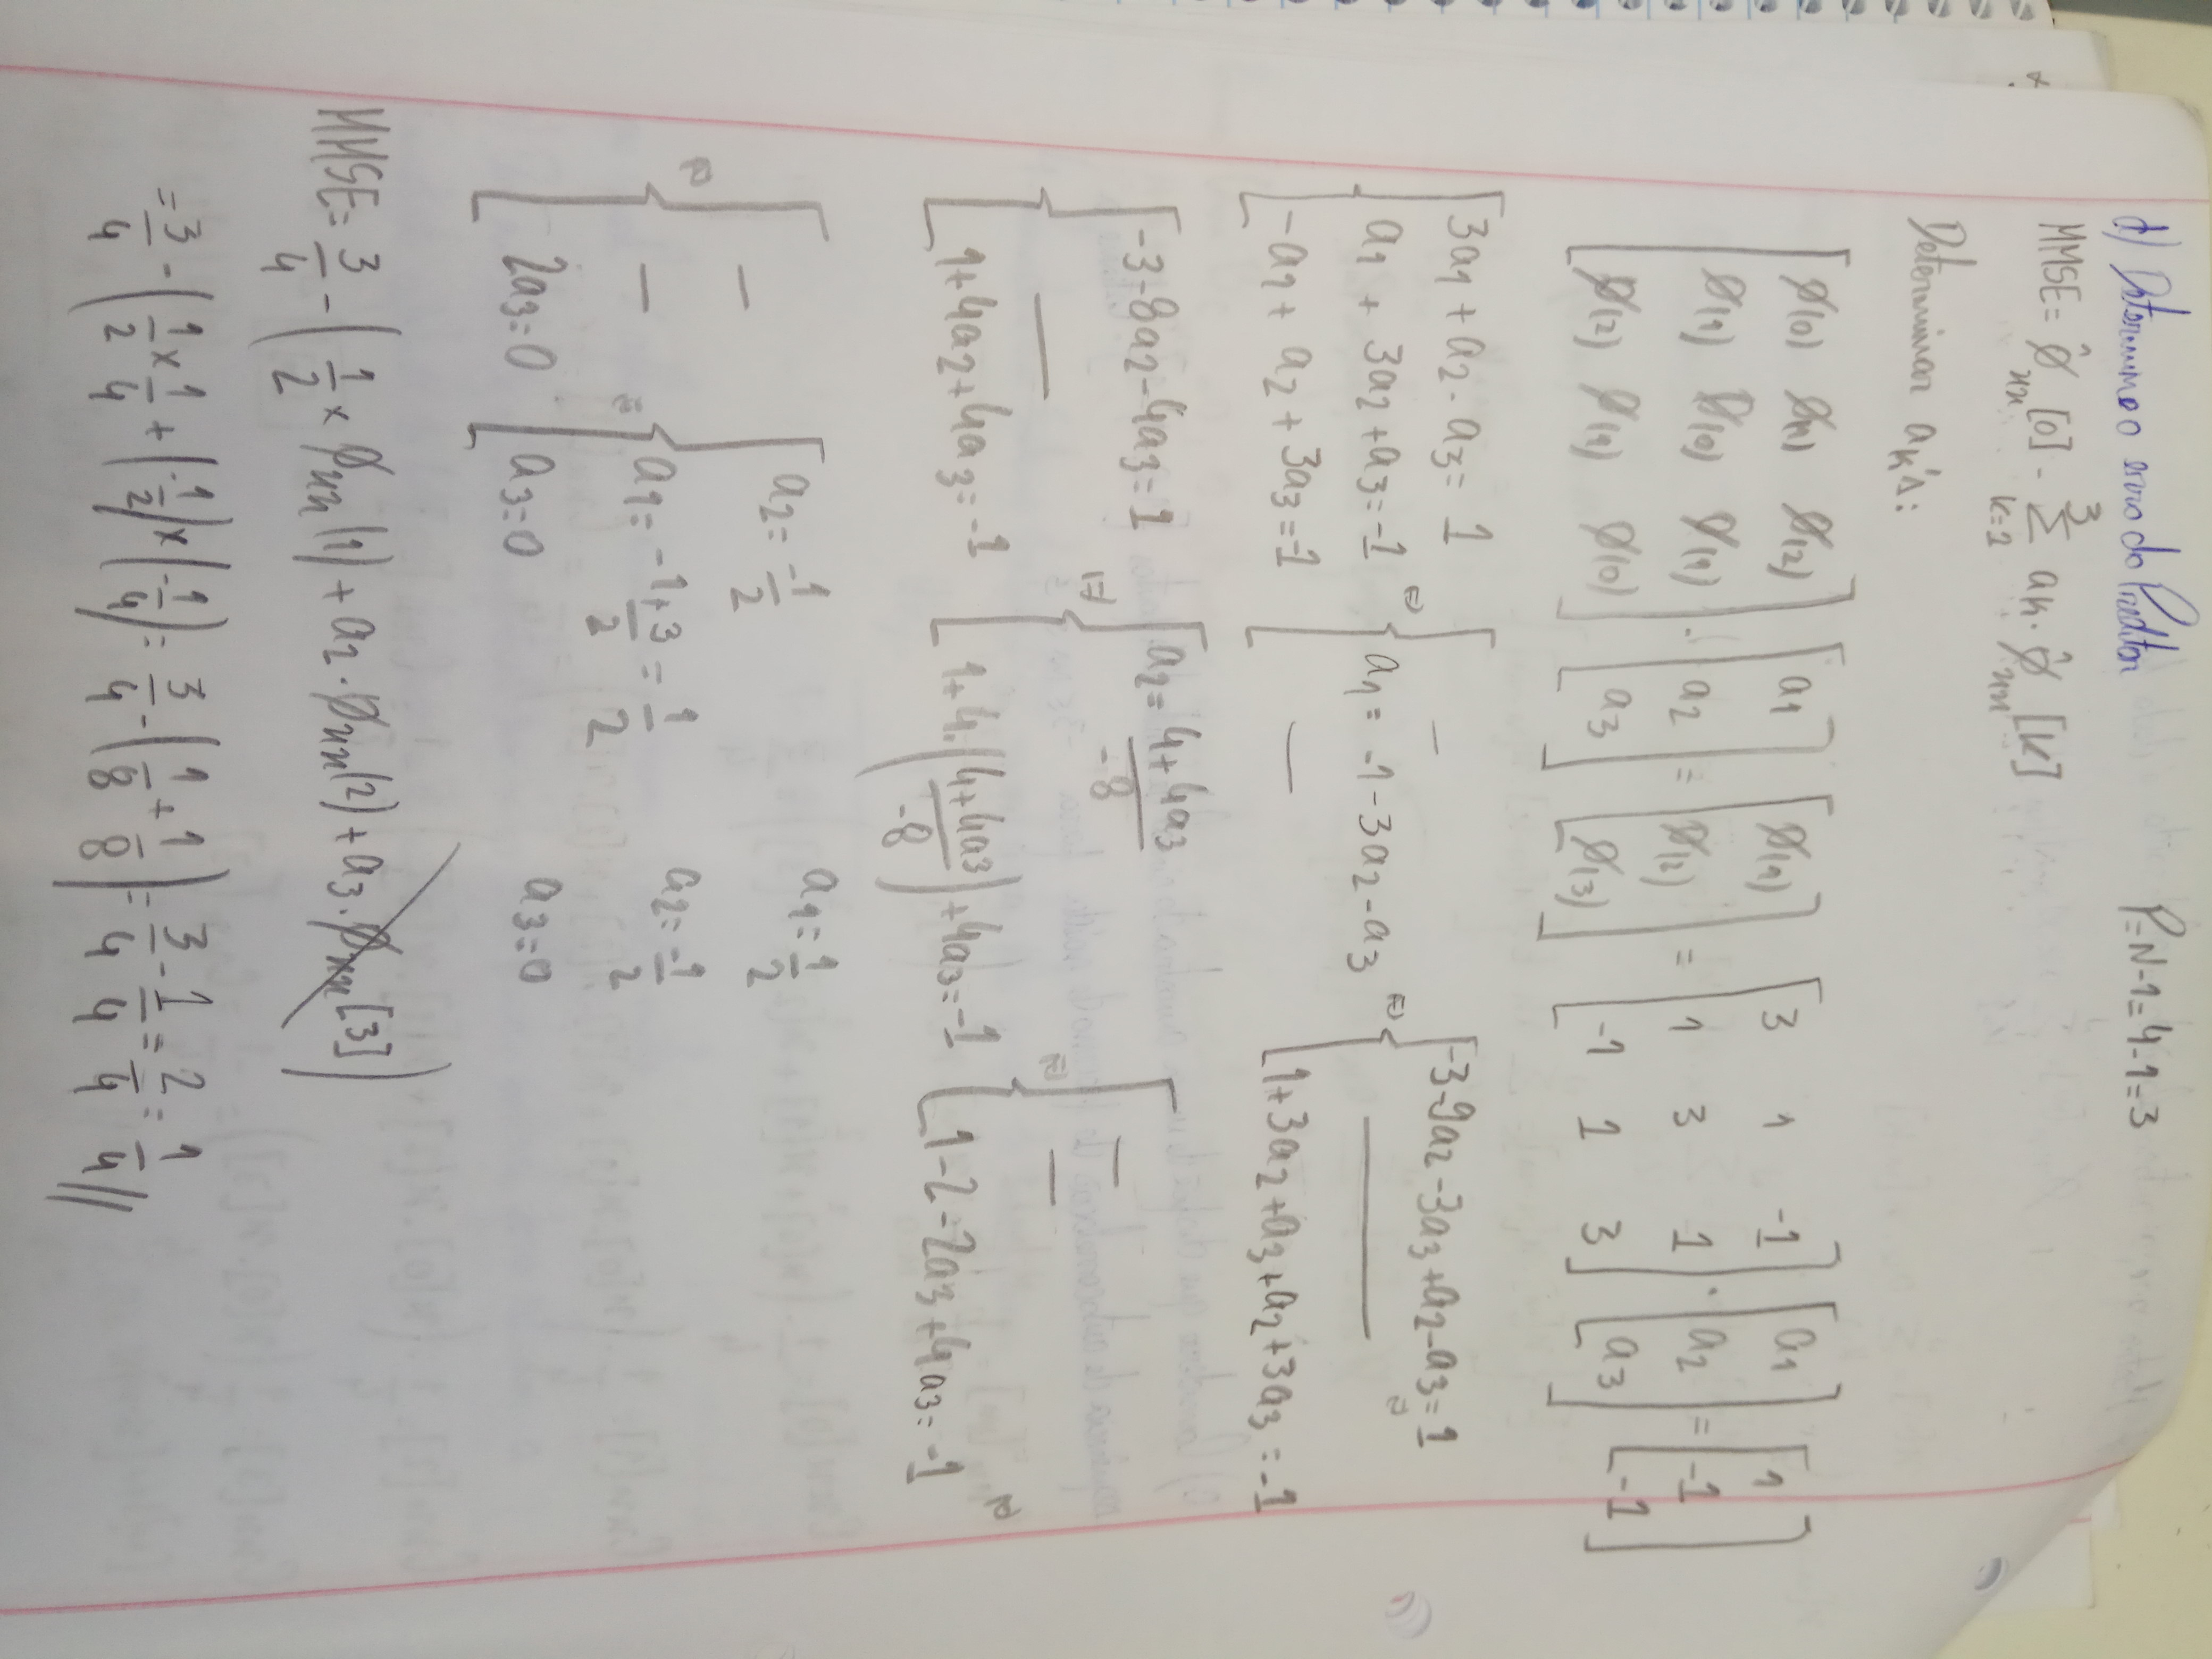 d) Determine o erro do Preditor P=N-1=4-1=3
MMSE= φ̂xx[0] - Σ_{k=1}^{3} ak. φ̂xx[k]
Determinar ak's:
[φ(0) φ(1) φ(2); φ(1) φ(0) φ(1); φ(2) φ(1) φ(0)] . [a1; a2; a3] = [φ(1); φ(2); φ(3)] = [3 1 -1; 1 3 1; -1 1 3] . [a1; a2; a3] = [1; -1; -1]
{3a1 + a2 - a3 = 1 ⇔ { — ⇔ {-3-9a2-3a3+a2-a3=1 ⇔
a1 + 3a2 + a3 = -1 a1 = -1-3a2-a3 —
-a1 + a2 + 3a3 = -1 — 1+3a2+a3+a2+3a3 = -1
{-3-8a2-4a3=1 ⇔ {a2= (4+4a3)/-8 ⇔ { —
— —
1+4a2+4a3=-1 1+4.((4+4a3)/-8)+4a3=-1 1-2-2a3+4a3=-1 ⇔
⇔ { — = {a2= -1/2 a1= 1/2
— a1= -1+3/2 = 1/2 a2= -1/2
2a3=0 a3=0 a3=0
MMSE= 3/4 - (1/2 × φxx(1) + a2 . φxx(2) + a3 . φxx[3])
= 3/4 - (1/2 × 1/4 + (-1/2) × (-1/4) = 3/4 - (1/8 + 1/8) = 3/4 - 1/4 = 2/4 = 1/4 //